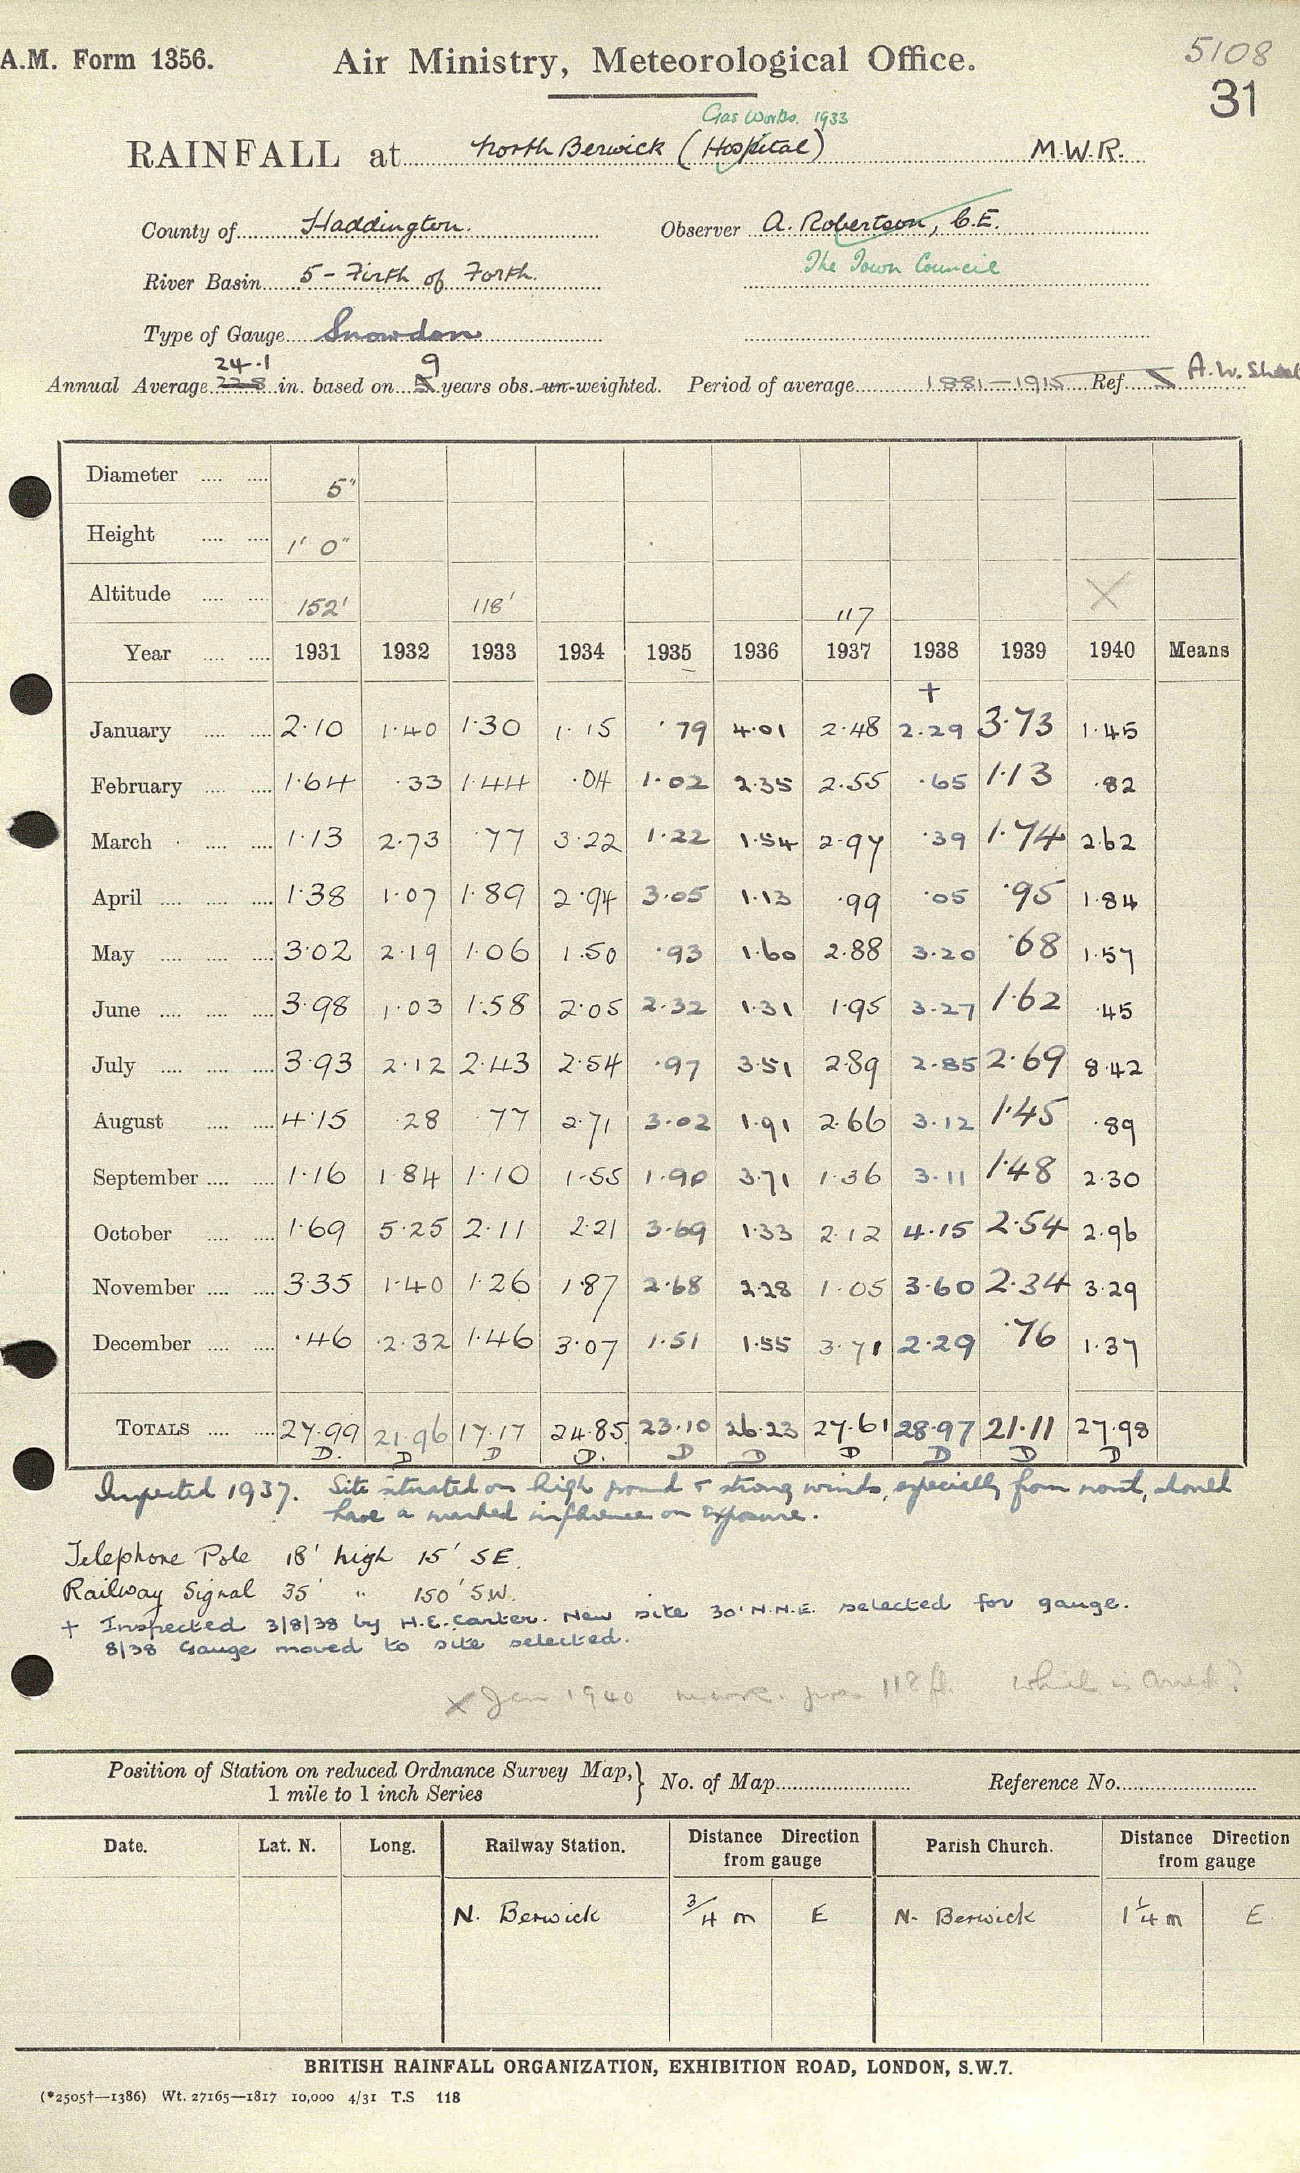 5108
A.M. Form 1356. Air Ministry, Meteorological Office.
31
Gas Works. 1933
RAINFALL at North Berwick (Hospital) M.W.R.
County of Haddington. Observer A. Robertson, C.E.
The Town Council
River Basin 5 - Firth of Forth.
Type of Gauge Snowdon
24.1 9
Annual Average 22.8 in. based on 5 years obs. un-weighted. Period of average 1881-1915 Ref. A.W. 
Diameter 5"
Height 1' 0"
Altitude 152' 118' 117 X
Year 1931 1932 1933 1934 1935 1936 1937 1938 1939 1940 Means
+
January 2.10 1.40 1.30 1.15 .79 4.01 2.48 2.29 3.73 1.45
February 1.64 .33 1.44 .04 1.02 2.35 2.55 .65 1.13 .82
March 1.13 2.73 .77 3.22 1.22 1.54 2.97 .39 1.74 2.62
April 1.38 1.07 1.89 2.94 3.05 1.13 .99 .05 .95 1.84
May 3.02 2.19 1.06 1.50 .93 1.60 2.88 3.20 .68 1.57
June 3.98 1.03 1.58 2.05 2.32 1.31 1.95 3.27 1.62 .45
July 3.93 2.12 2.43 2.54 .97 3.51 2.89 2.85 2.69 8.42
August 4.15 .28 .77 2.71 3.02 1.91 2.66 3.12 1.45 .89
September 1.16 1.84 1.10 1.55 1.90 3.71 1.36 3.11 1.48 2.30
October 1.69 5.25 2.11 2.21 3.69 1.33 2.12 4.15 2.54 2.96
November 3.35 1.40 1.26 1.87 2.68 2.28 1.05 3.60 2.34 3.29
December .46 2.32 1.46 3.07 1.51 1.55 3.71 2.29 .76 1.37
TOTALS 27.99 21.96 17.17 24.85 23.10 26.23 27.61 28.97 21.11 27.98
D. D D D. D D D D D D
Inspected 1937. Site situated on high ground & strong winds, especially from west, should
have a marked influence on exposure.
Telephone Pole 18' high 15' SE.
Railway Signal 35' " 150' S.W.
+ Inspected 3/8/38 by H.E. Carter. New site 30' N.N.E. selected for gauge.
8/38 Gauge moved to site selected.
X Jan 1940 118 ft. which is correct?
Position of Station on reduced Ordnance Survey Map, } No. of Map Reference No.
1 mile to 1 inch Series
Date. Lat. N. Long. Railway Station. Distance Direction from gauge Parish Church. Distance Direction from gauge
N. Berwick 3/4 m E N. Berwick 1 1/4 m E
BRITISH RAINFALL ORGANIZATION, EXHIBITION ROAD, LONDON, S.W.7.
(*2505†—1386) Wt. 27165—1817 10,000 4/31 T.S 118